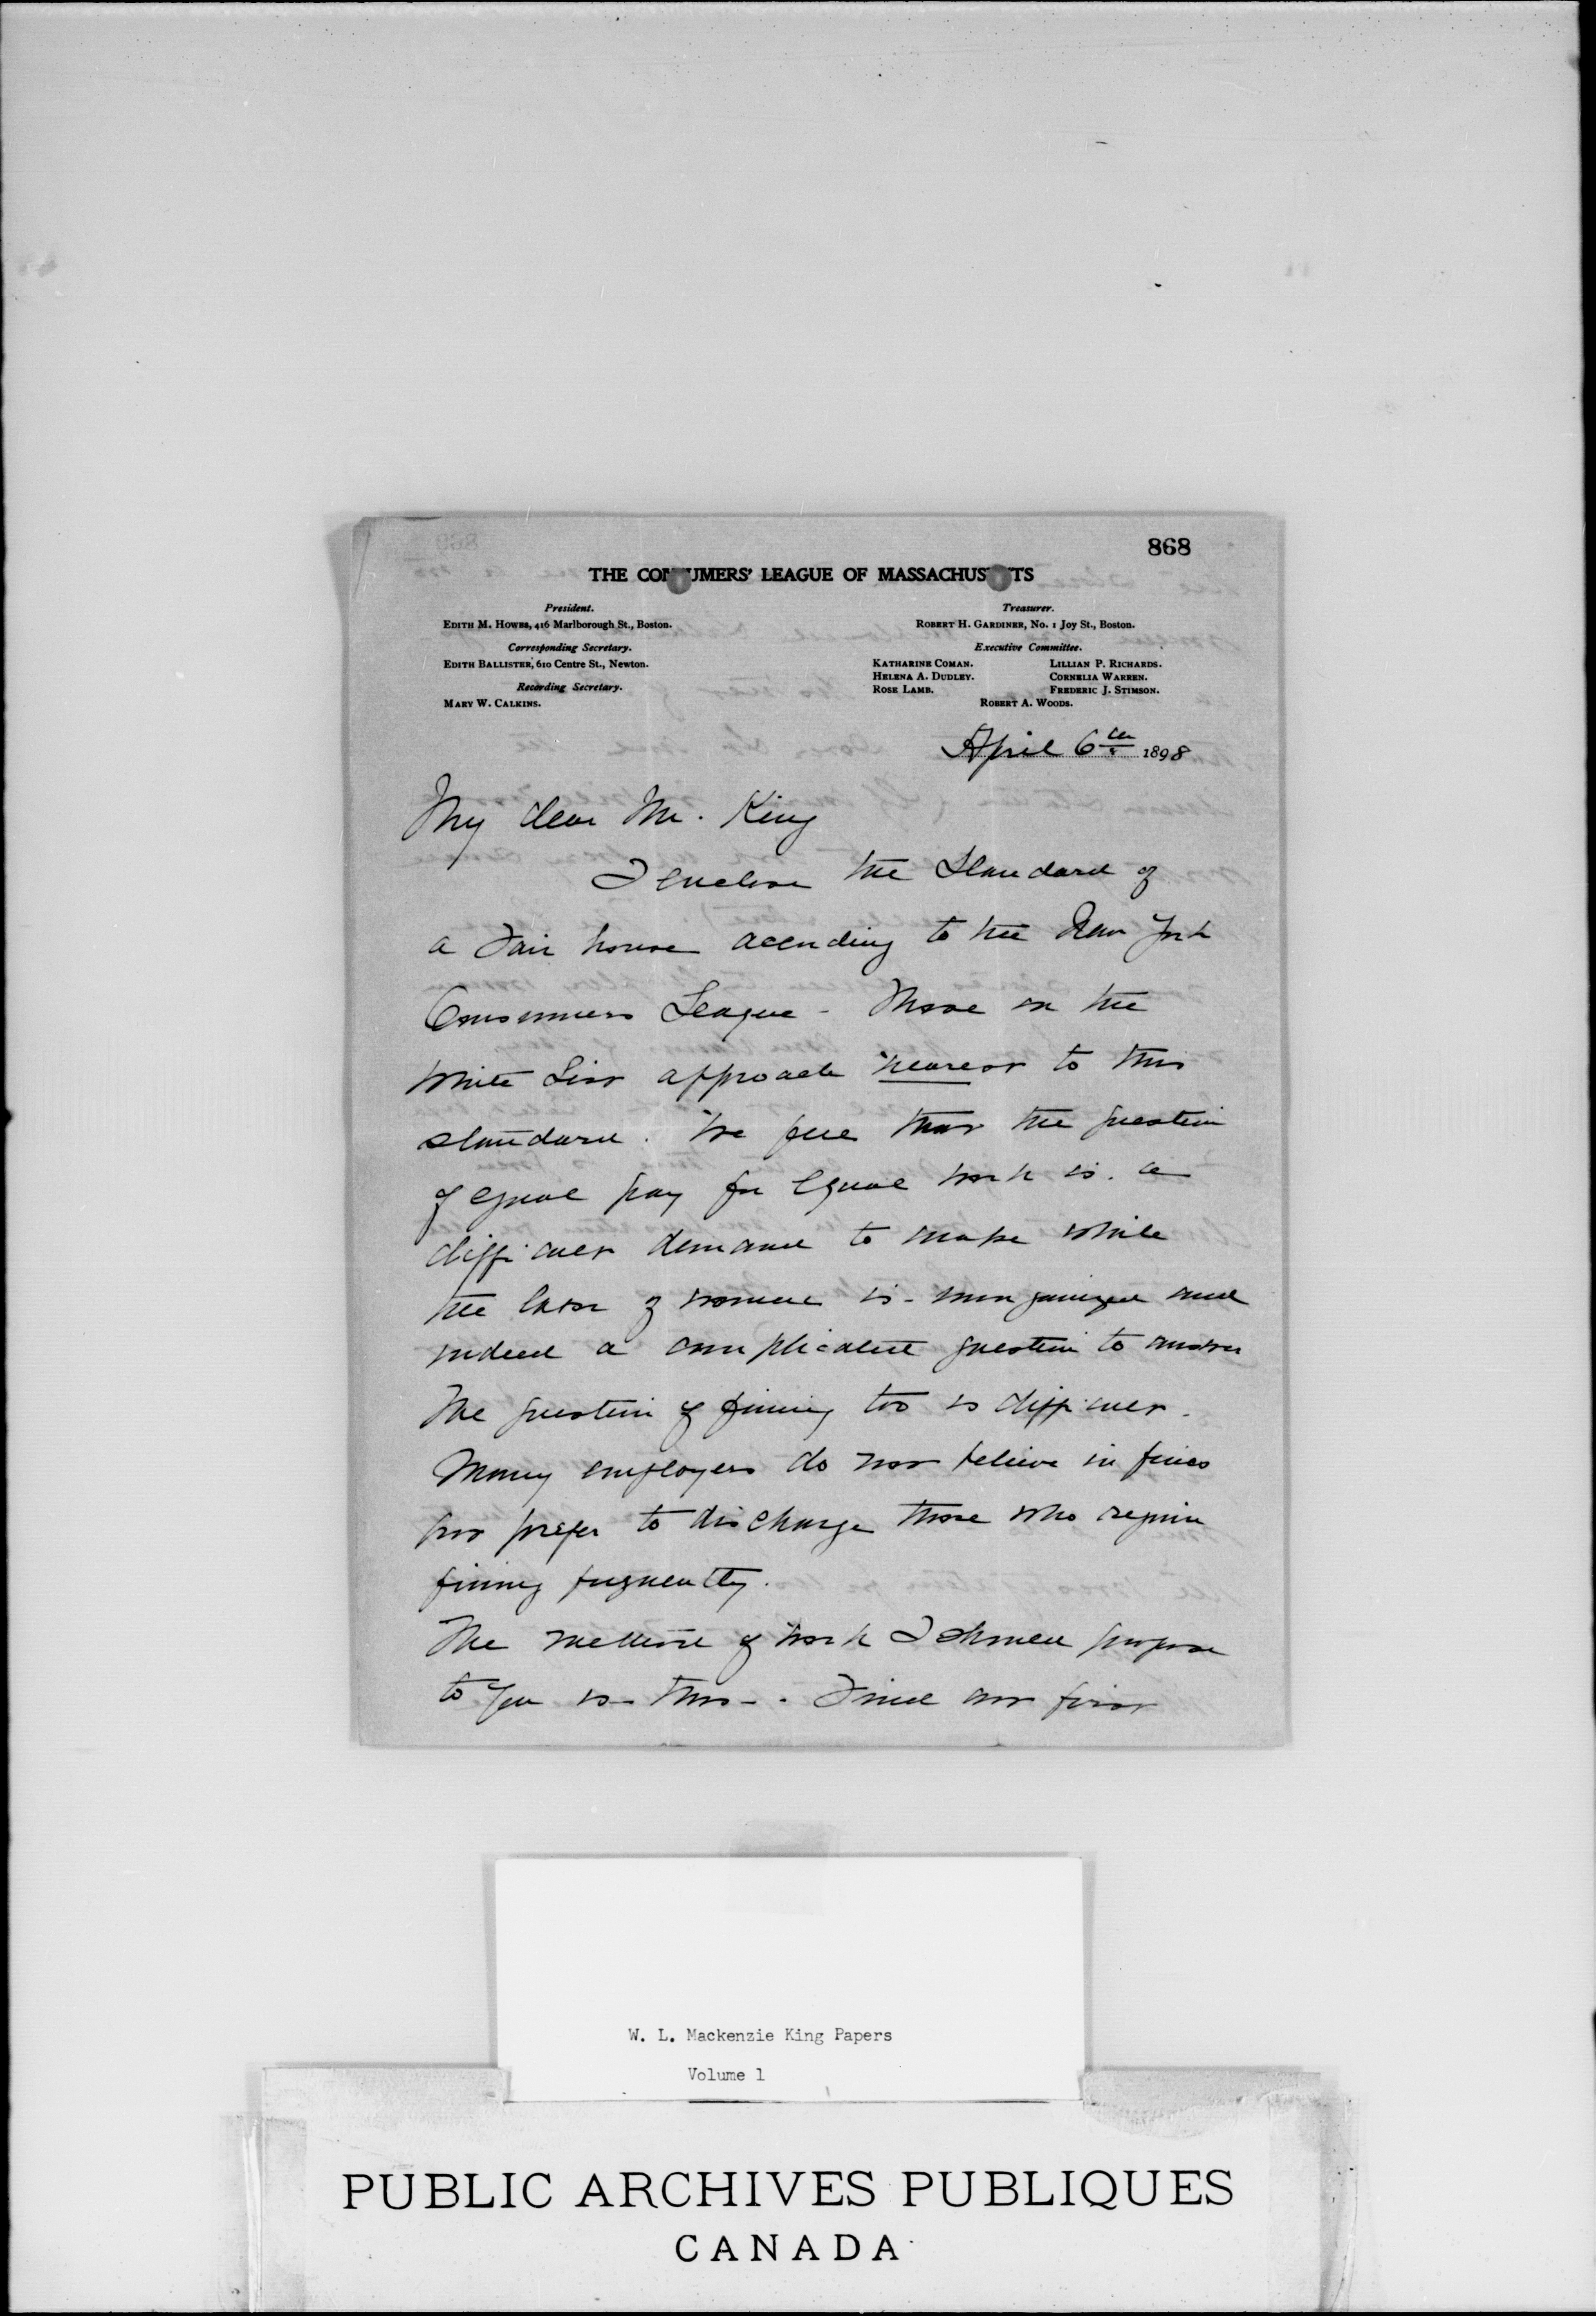 868
THE CONSUMERS' LEAGUE OF MASSACHUSETTS
President.
EDITH M. HOWES, 416 Marlborough St., Boston.
Corresponding Secretary.
EDITH BALLISTER, 610 Centre St., Newton.
Recording Secretary.
MARY W. CALKINS.
Treasurer.
ROBERT H. GARDINER, No. 1 Joy St., Boston.
Executive Committee.
KATHARINE COMAN. LILLIAN P. RICHARDS.
HELENA A. DUDLEY. CORNELIA WARREN.
ROSE LAMB. FREDERIC J. STIMSON.
ROBERT A. WOODS.
April 6th 1898
My dear Mr. King
I enclose the Standard of
a Fair house according to the New York
Consumers League - Those on the
White List approach nearest to this
standard. We feel that the question
of equal pay for equal work is a
difficult demand to make while
the labor of women is unorganized and
indeed a complicated question to answer
The question of fining too is difficult.
Many employers do not believe in fines
but prefer to discharge those who require
fining frequently.
The method of work I should propose
to you is this -. Find out first
W. L. Mackenzie King Papers
Volume 1
PUBLIC ARCHIVES PUBLIQUES
CANADA